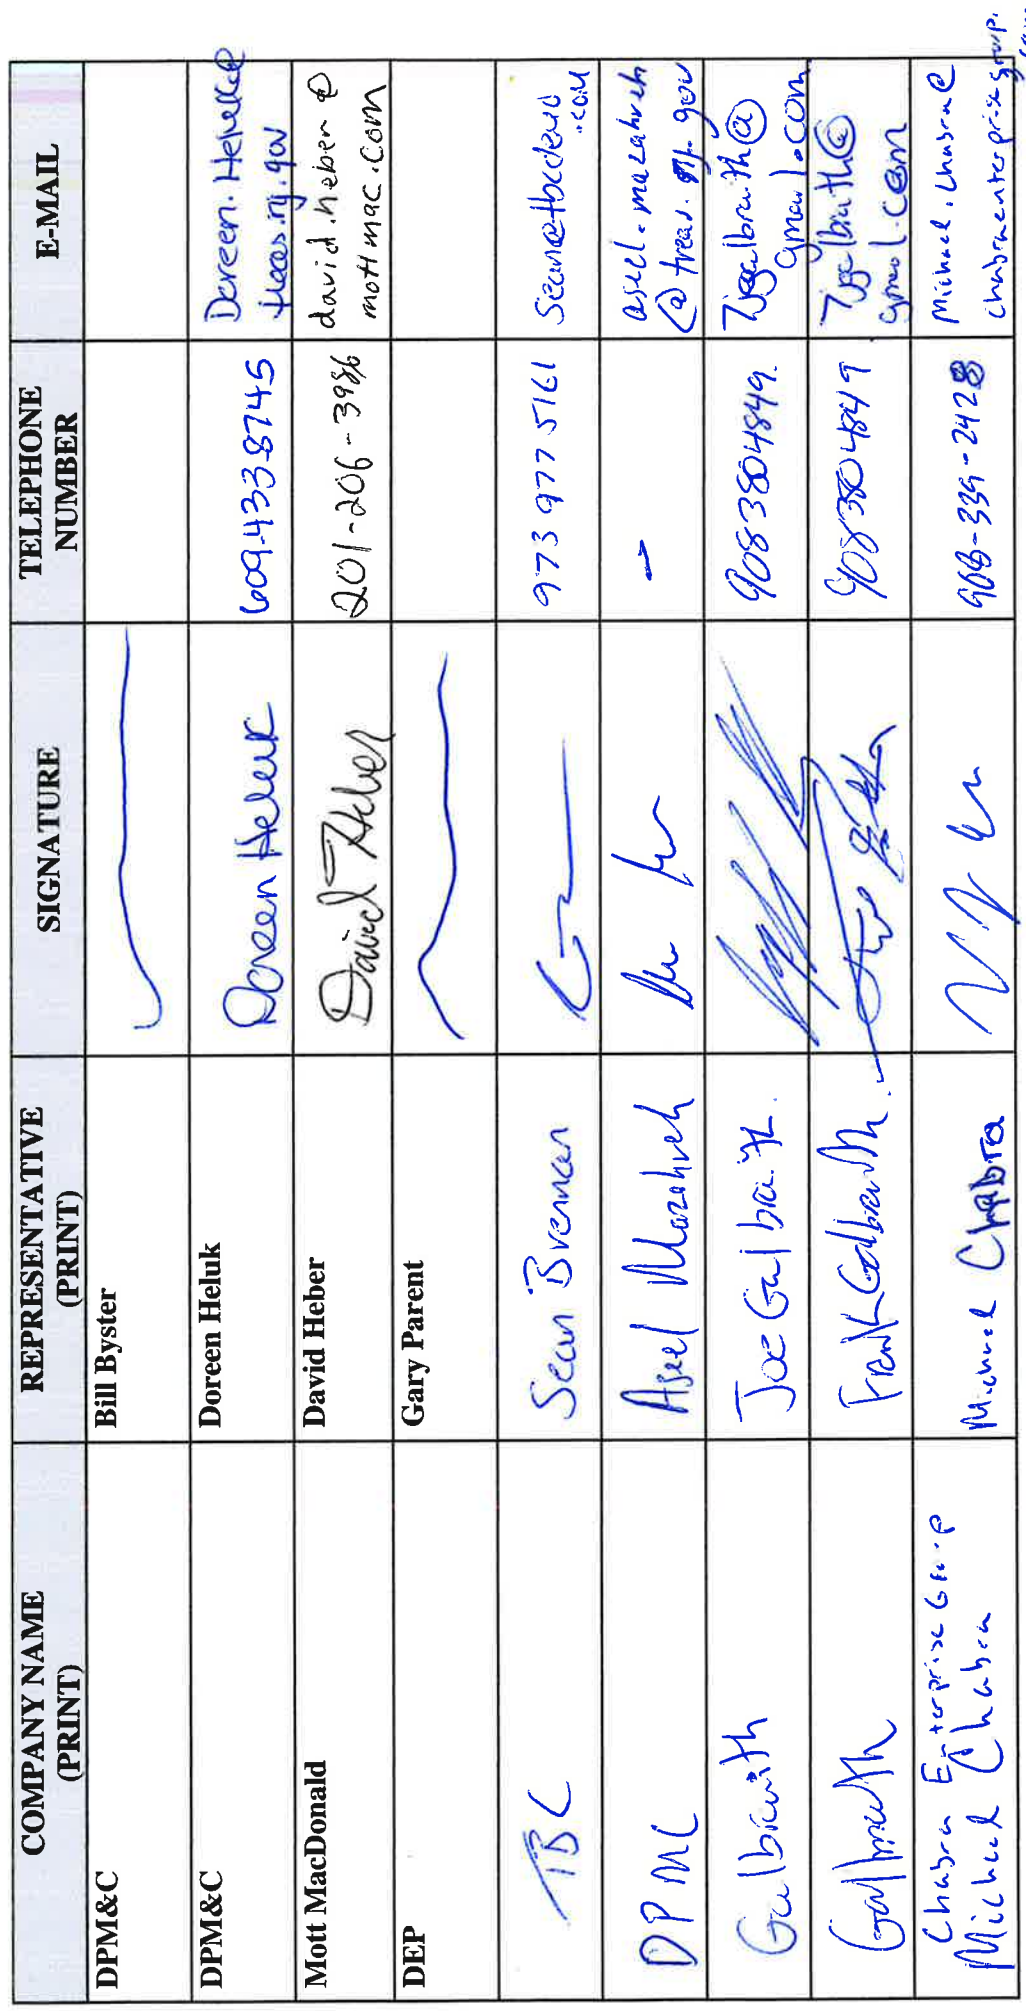 COMPANY NAME
(PRINT)
REPRESENTATIVE
(PRINT)
SIGNATURE
TELEPHONE
NUMBER
E-MAIL
DPM&C
Bill Byster
DPM&C
Doreen Heluk
Doreen Heluk
609-433-8745
Doreen.Heluk@
.nj.gov
Mott MacDonald
David Heber
David Heber
201-206-3986
david.heber@
mottmac.com
DEP
Gary Parent
TBC
Sean Brennan
973 977 5161
.com
DPMC
Aseel Mazahreh
-
aseel.mazahreh
@treas.nj.gov
Galbraith
Joe Galbraith
9083804849.
gmail.com
Galbraith
Frank Galbraith
9083804849
gmail.com
Chabra Enterprise Group
Michael Chabra
Michael Chabra
908-339-2428
Michael.chabra@
chabraenterprisegroup.
com